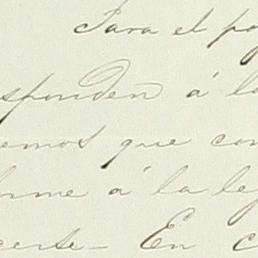 Para el pa
sponden á lo
emos que con
forme á la le
certe- En c